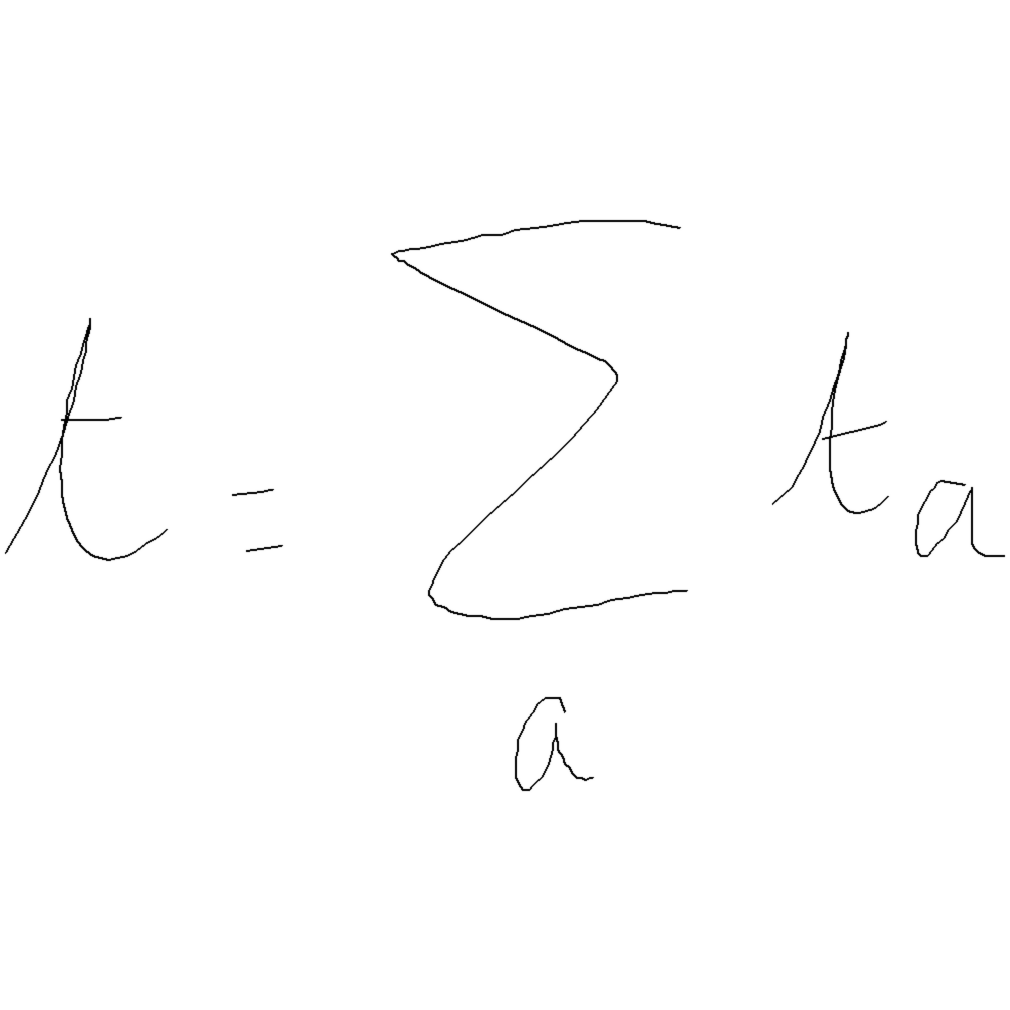 t = \sum_{a} t_a